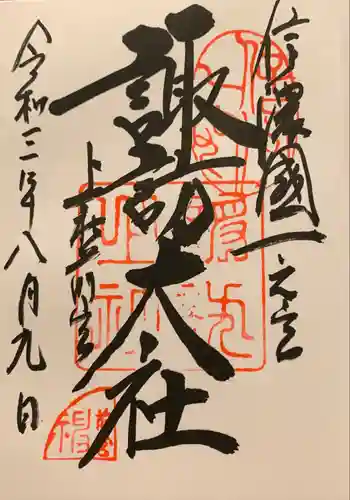 信濃國一之宮
諏訪大社
上社前宮
令和三年八月九日